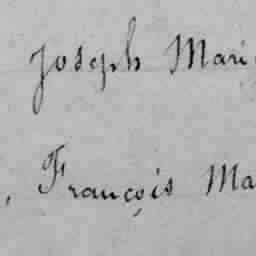 Joseph Mari
, François Ma